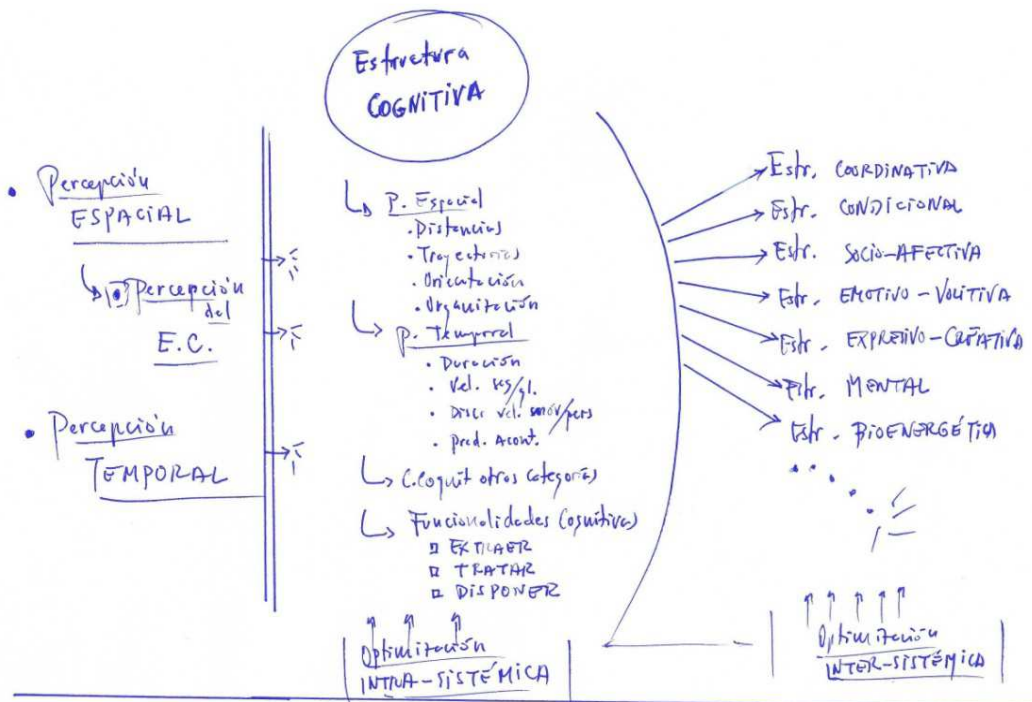 Estructura
COGNITIVA
• Percepción
ESPACIAL
Percepción
del
E.C.
• Percepción
TEMPORAL
P. Espacial
• Distancias
• Trayectorias
• Orientación
• Organización
P. Temporal
• Duración
• Vel.
• Discr vel. móv/pers
• pred. Acont.
C. Cognit otras categorías
Funcionalidades Cognitivas
EXTRAER
TRATAR
DISPONER
Optimización
INTRA-SISTÉMICA
Estr. COORDINATIVA
Estr. CONDICIONAL
Estr. SOCIO-AFECTIVA
Estr. EMOTIVO-VOLITIVA
Estr. EXPRESIVO-CREATIVA
Estr. MENTAL
Estr. BIOENERGÉTICA
Optimización
INTER-SISTÉMICA